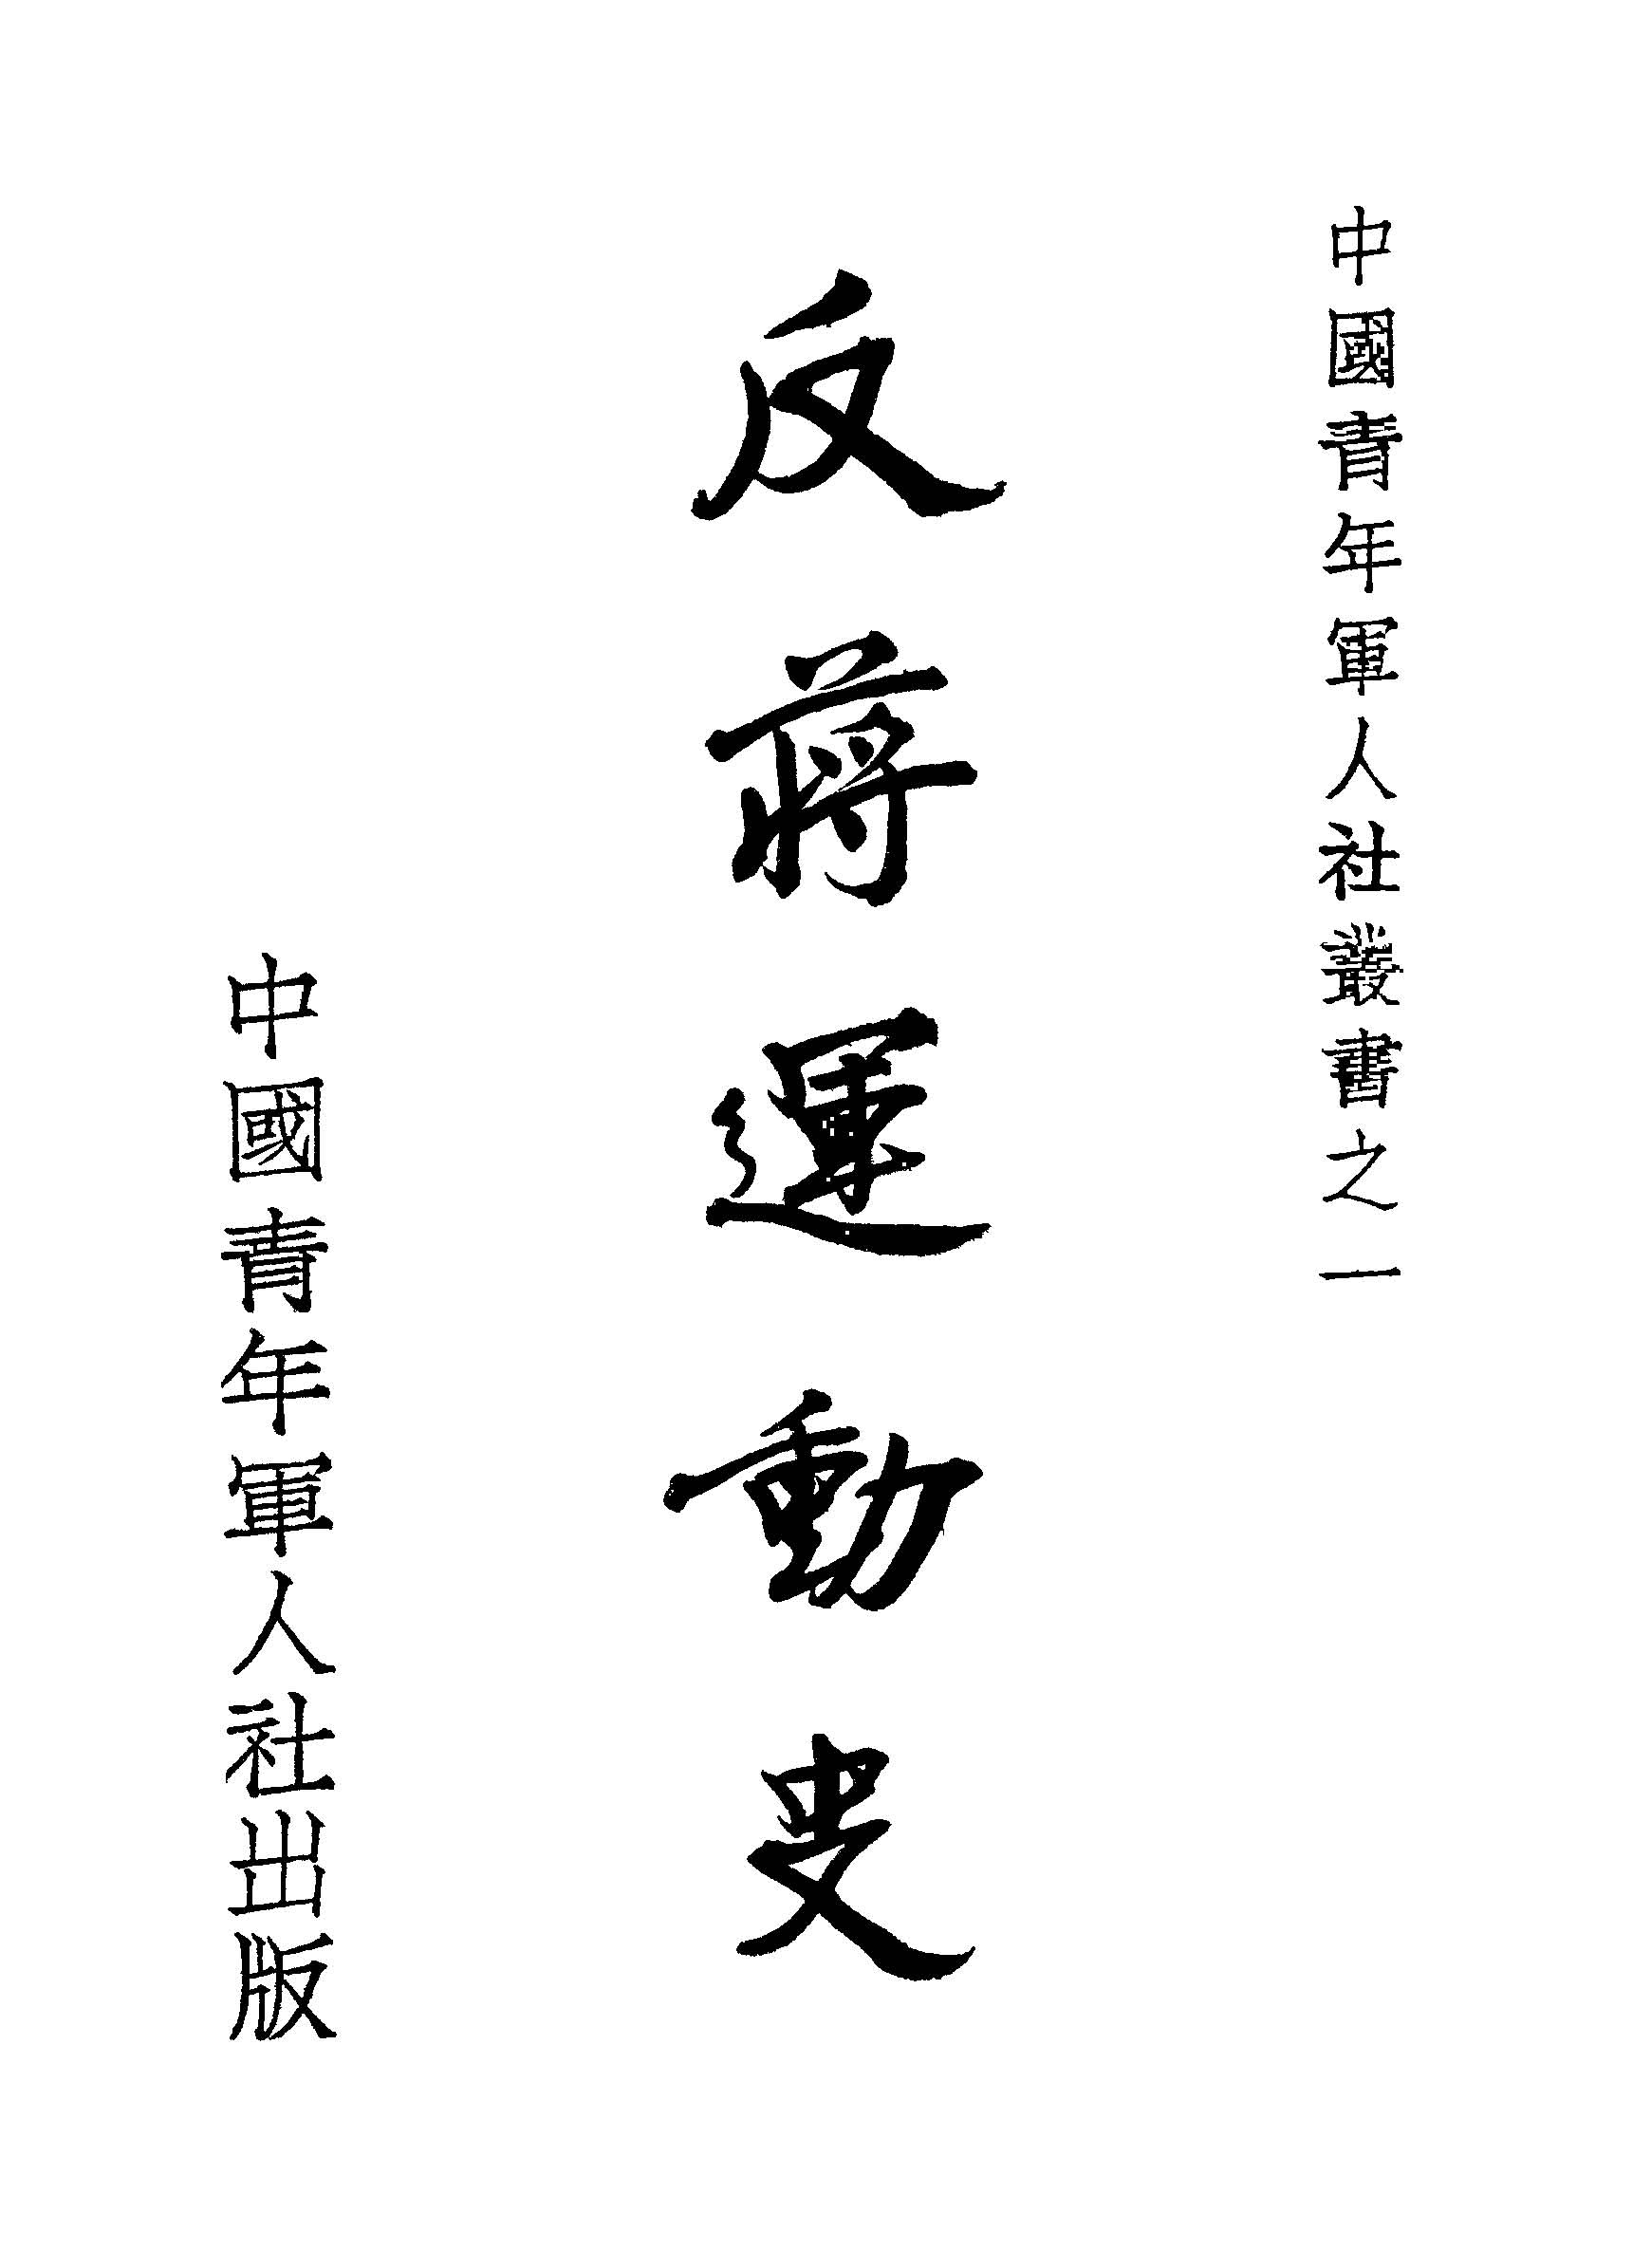 中國青年軍人社叢書之一
反蔣運動史
中國青年軍人社出版